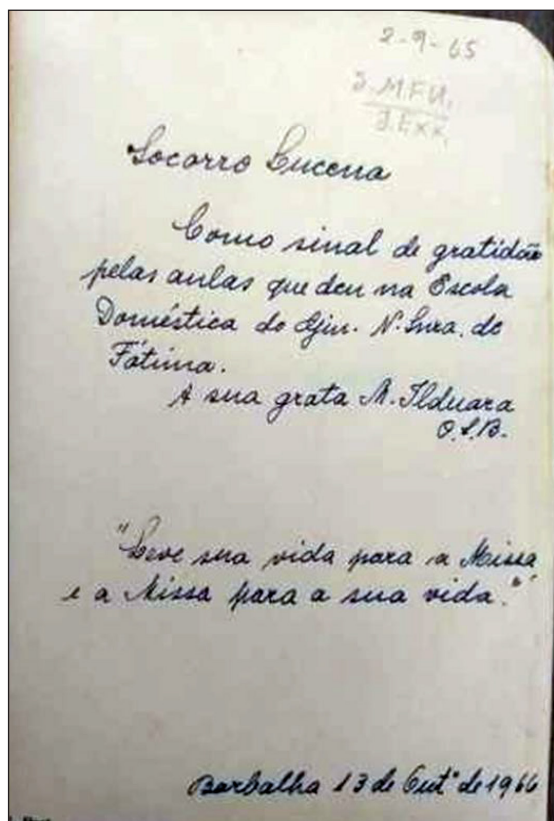 2-9-65
J.MFU.
Socorro Lucena
Como sinal de gratidão
pelas aulas que deu na Escola
Doméstica do Gin. N. Snra. de
Fátima.
A sua grata M. Ilduara
O.S.B.
"Leve sua vida para a Missa
e a Missa para a sua vida."
Barbalha 13 de Outº de 1966